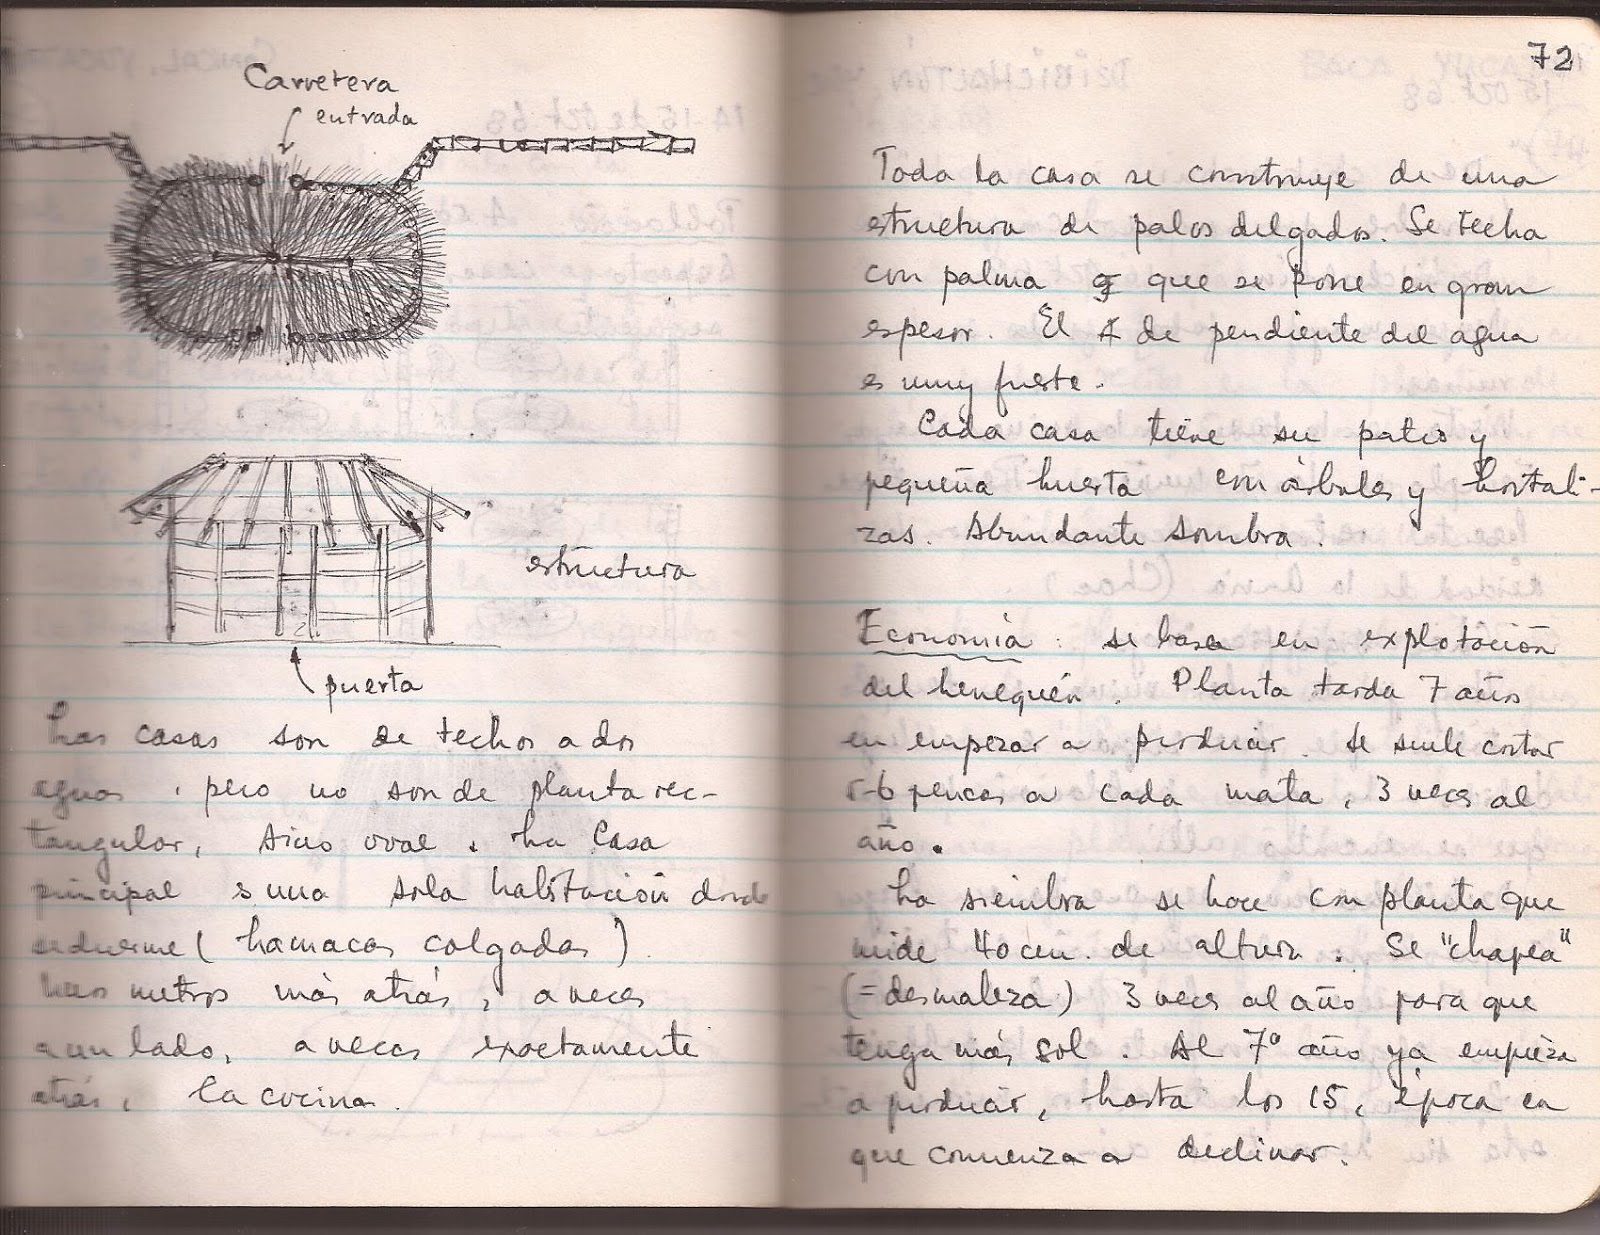 Carretera
entrada
estructura
puerta
Las casas son de techos a dos
aguas, pero no son de planta rec-
tangular, sino oval. La Casa
principal es una sola habitación donde
se duerme (hamacas colgadas)
metros más atrás, a veces
a un lado, a veces exactamente
atrás, la cocina.
72
Toda la casa se construye de una
estructura de palos delgados. Se techa
con palma que se pone en gran
espesor. El ∡ de pendiente del agua
es muy fuerte.
Cada casa tiene su patio y
pequeña huerta con árboles y hortali-
zas. Abundante sombra.
Economía: se basa en explotación
del henequén. Planta tarda 7 años
en empezar a producir. Se suele cortar
5-6 pencas a cada mata, 3 veces al
año.
La siembra se hace con planta que
mide 40 cm. de altura. Se "chapea"
(=desmaleza) 3 veces al año para que
tenga más sol. Al 7º año ya empieza
a producir, hasta los 15, época en
que comienza a declinar.